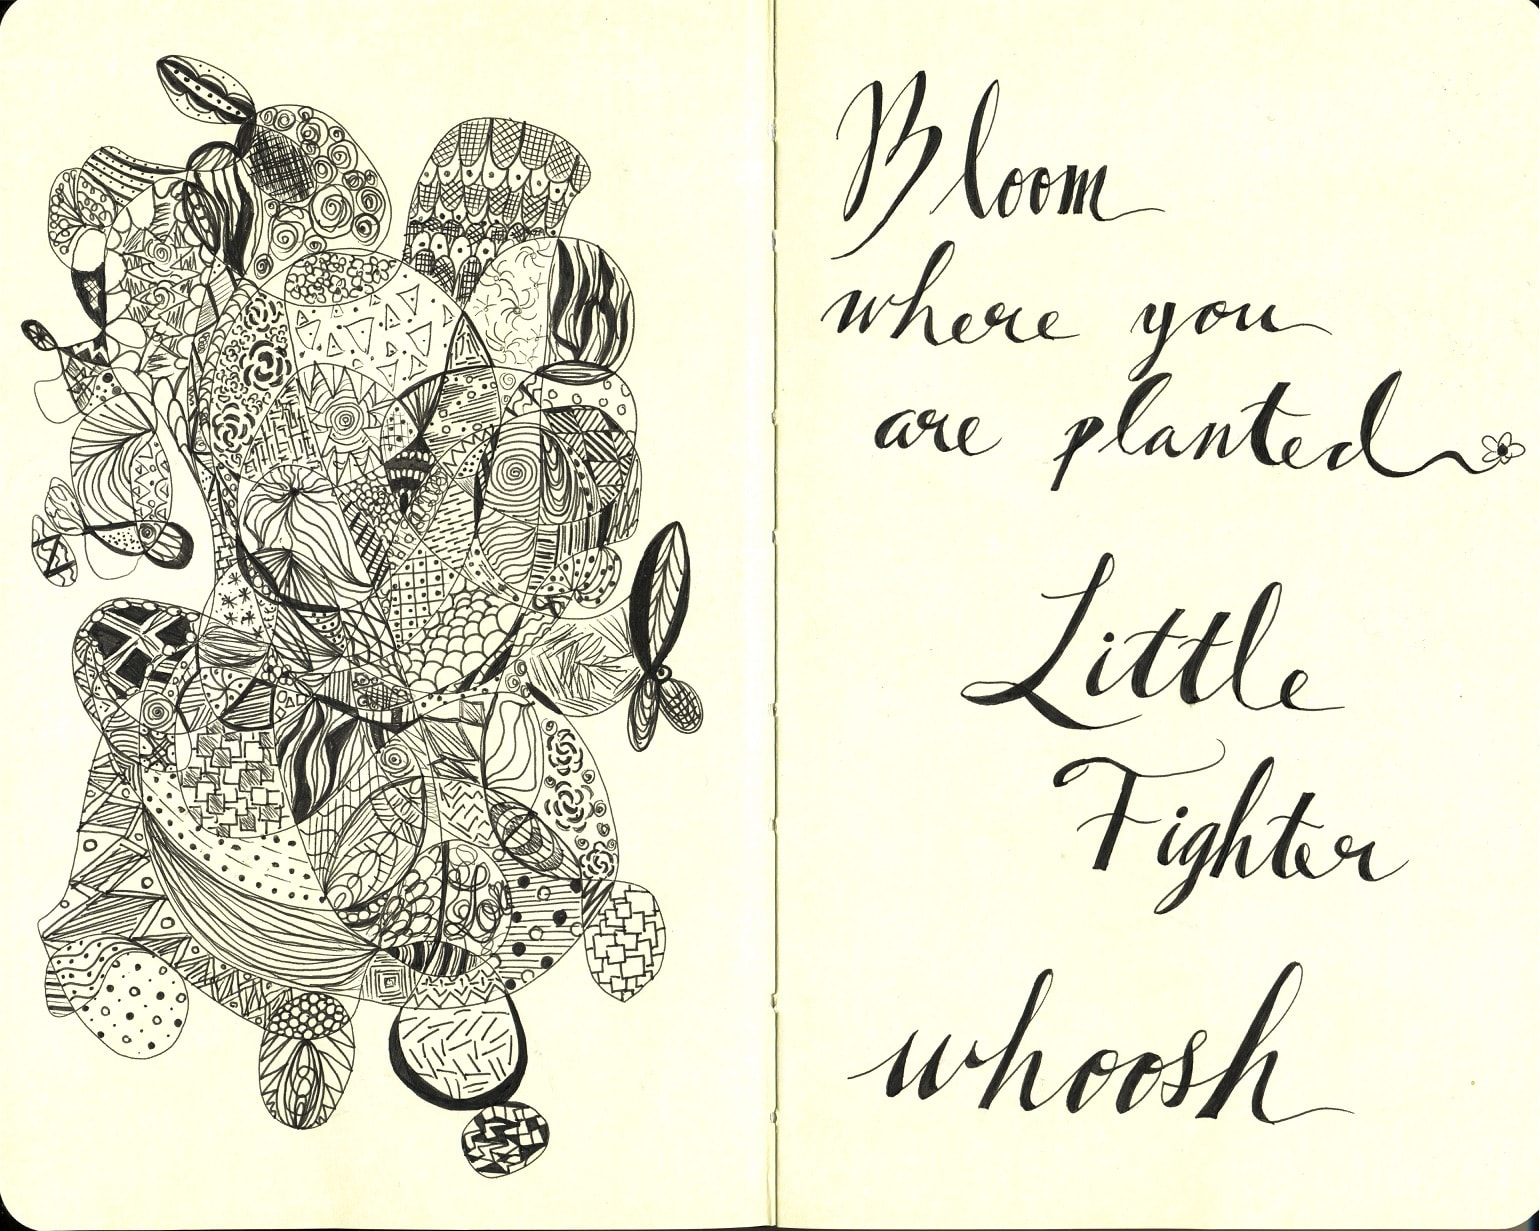 Bloom
where you
are planted
Little
Fighter
whoosh